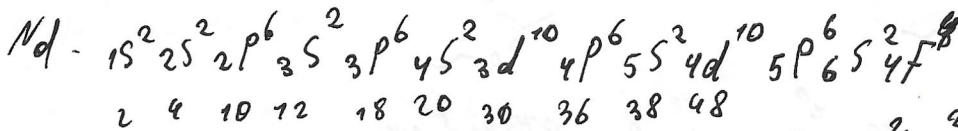 Nd - 1S² 2S² 2p⁶ 3S² 3p⁶ 4S² 3d¹⁰ 4p⁶ 5S² 4d¹⁰ 5p⁶ 6S² 4F
2 4 10 12 18 20 30 36 38 48